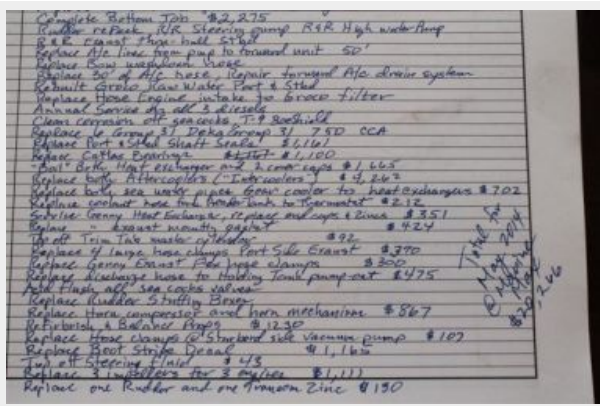 Complete Bottom Job $2,275
Rudder repack R/R Steering pump R&R High water Pump
R & R exaust thru hull Stbd
Replace A/c lines from pump to forward unit 50'
Replace Bow washdown hose
Replace 30' of A/c hose, Repair forward A/c drain system
Rebuilt Groko Raw Water Port & Stbd
Replace Hose Engine intake to Groco filter
Annual Service Ag all 3 diesels
Clean corrosion off seacocks, T-9 BoeShield
Replace 6 Group 31 Deka Group 31 750 CCA
Replace Port & Stbd Shaft Seals $1,161
Replace Cutlas Bearings $1,100
"Boil" Both Heat exchanger and 2 cover caps $1,665
Replace both Aftercoolers / "Intercoolers" $4,262
Replace both sea water pipes Gear cooler to heat exchangers $702
Replace coolant hose from header Tank to Thermostat $212
Service Genny Heat Exchanger, replace end caps & Zincs $351
Replace " exaust mounting gasket $424
Top off Trim Tab master cylinder $92
Replace 4 large hose clamps Port Side Exaust $390
Replace Genny Exaust Flex hose clamps $300
Replace discharge hose to Holding Tank pump-out $475
Acid flush all sea cocks valves
Replace Rudder Stuffing Boxes
Replace Horn compressor and horn mechanism $867
Refurbish & Balance Props $1230
Replace Hose clamps @ Starbord side vacuum pump $107
Replace Boot Stripe Decal $1,165
Top off Steering fluid $43
Replace 3 impellers for 3 engines $1,111
Replace one Rudder and one Transom Zinc $190
Total for
May 2014
@ Marine
Max
$20,266